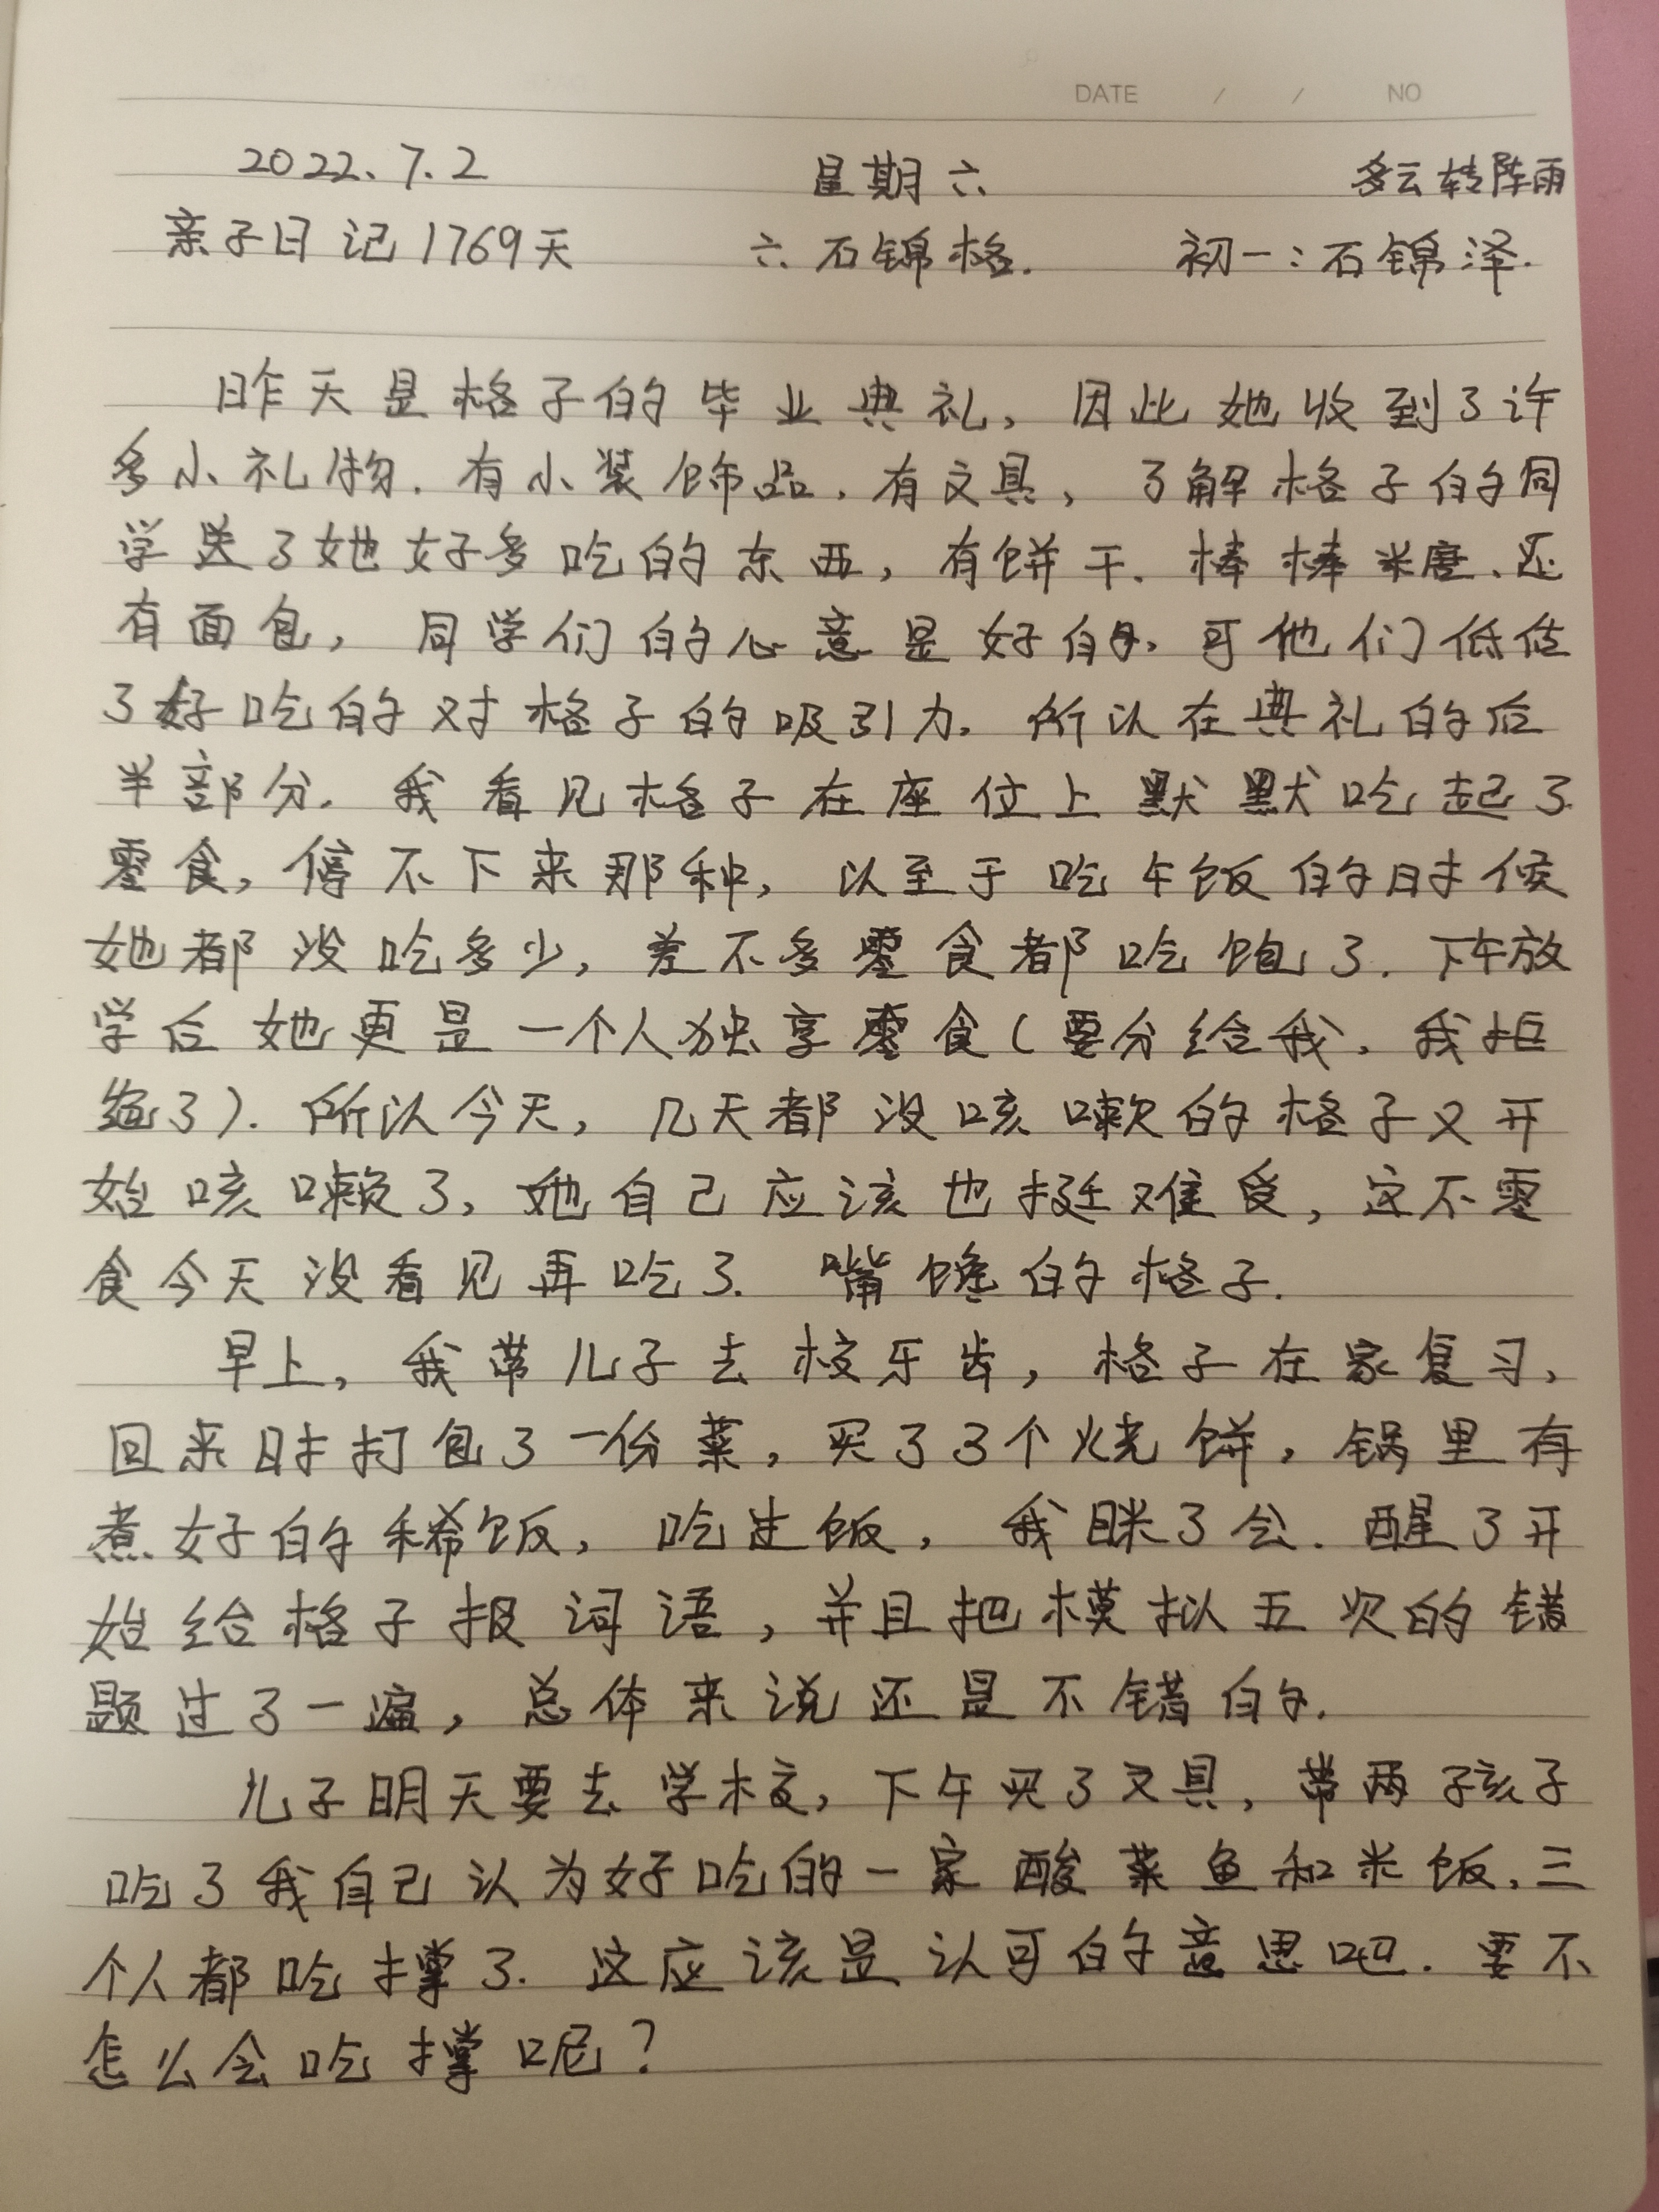 DATE / / NO
2022.7.2 星期六 多云转阵雨
亲子日记1769天 六石锦格. 初一:石锦泽.
昨天是格子的毕业典礼,因此她收到了许
多小礼物.有小装饰品.有文具,了解格子的同
学送了她好多吃的东西,有饼干.棒棒糖.还
有面包,同学们的心意是好的,可他们低估
了好吃的对格子的吸引力.所以在典礼的后
半部分.我看见格子在座位上默默吃起了
零食,停不下来那种,以至于吃午饭的时候
她都没吃多少,差不多零食都吃饱了.下午放
学后她更是一个人独享零食(要分给我,我拒
绝了).所以今天,几天都没咳嗽的格子又开
始咳嗽了,她自己应该也挺难受,这不零
食今天没看见再吃了.嘴馋的格子.
早上,我带儿子去校牙齿,格子在家复习,
回来时打包了一份菜,买了3个烧饼,锅里有
煮好的稀饭,吃过饭,我眯了会.醒了开
始给格子报词语,并且把模拟五次的错
题过了一遍,总体来说还是不错的.
儿子明天要去学校,下午买了文具,带两孩子
吃了我自己认为好吃的一家酸菜鱼和米饭,三
个人都吃撑了.这应该是认可的意思吧.要不
怎么会吃撑呢?